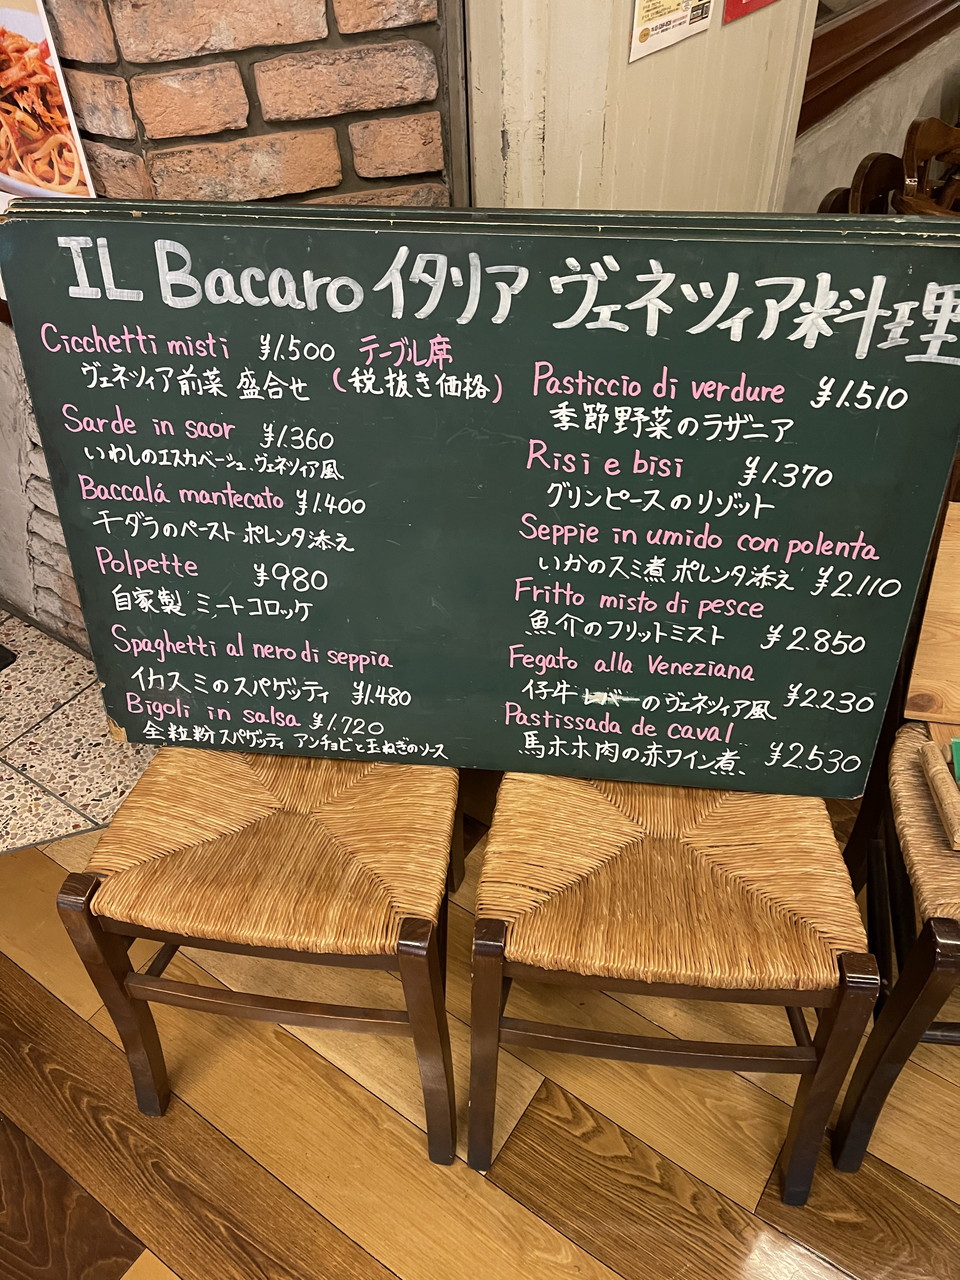 IL Bacaro イタリア ヴェネツィア料理
Cicchetti misti ¥1.500 テーブル席
ヴェネツィア前菜 盛合せ (税抜き価格)
Sarde in saor ¥1.360
いわしのエスカベーシュ.ヴェネツィア風
Baccalá mantecato ¥1.400
干ダラのペースト ポレンタ添え
Polpette ¥980
自家製 ミートコロッケ
Spaghetti al nero di seppia
イカスミのスパゲッティ ¥1.480
Bigoli in salsa ¥1.720
全粒粉スパゲッティ アンチョビと玉ねぎのソース
Pasticcio di verdure ¥1.510
季節野菜のラザニア
Risi e bisi ¥1.370
グリンピースのリゾット
Seppie in umido con polenta
いかのスミ煮 ポレンタ添え ¥2.110
Fritto misto di pesce
魚介のフリットミスト ¥2.850
Fegato alla Veneziana
仔牛レバーのヴェネツィア風 ¥2.230
Pastissada de caval
馬ホホ肉の赤ワイン煮 ¥2.530